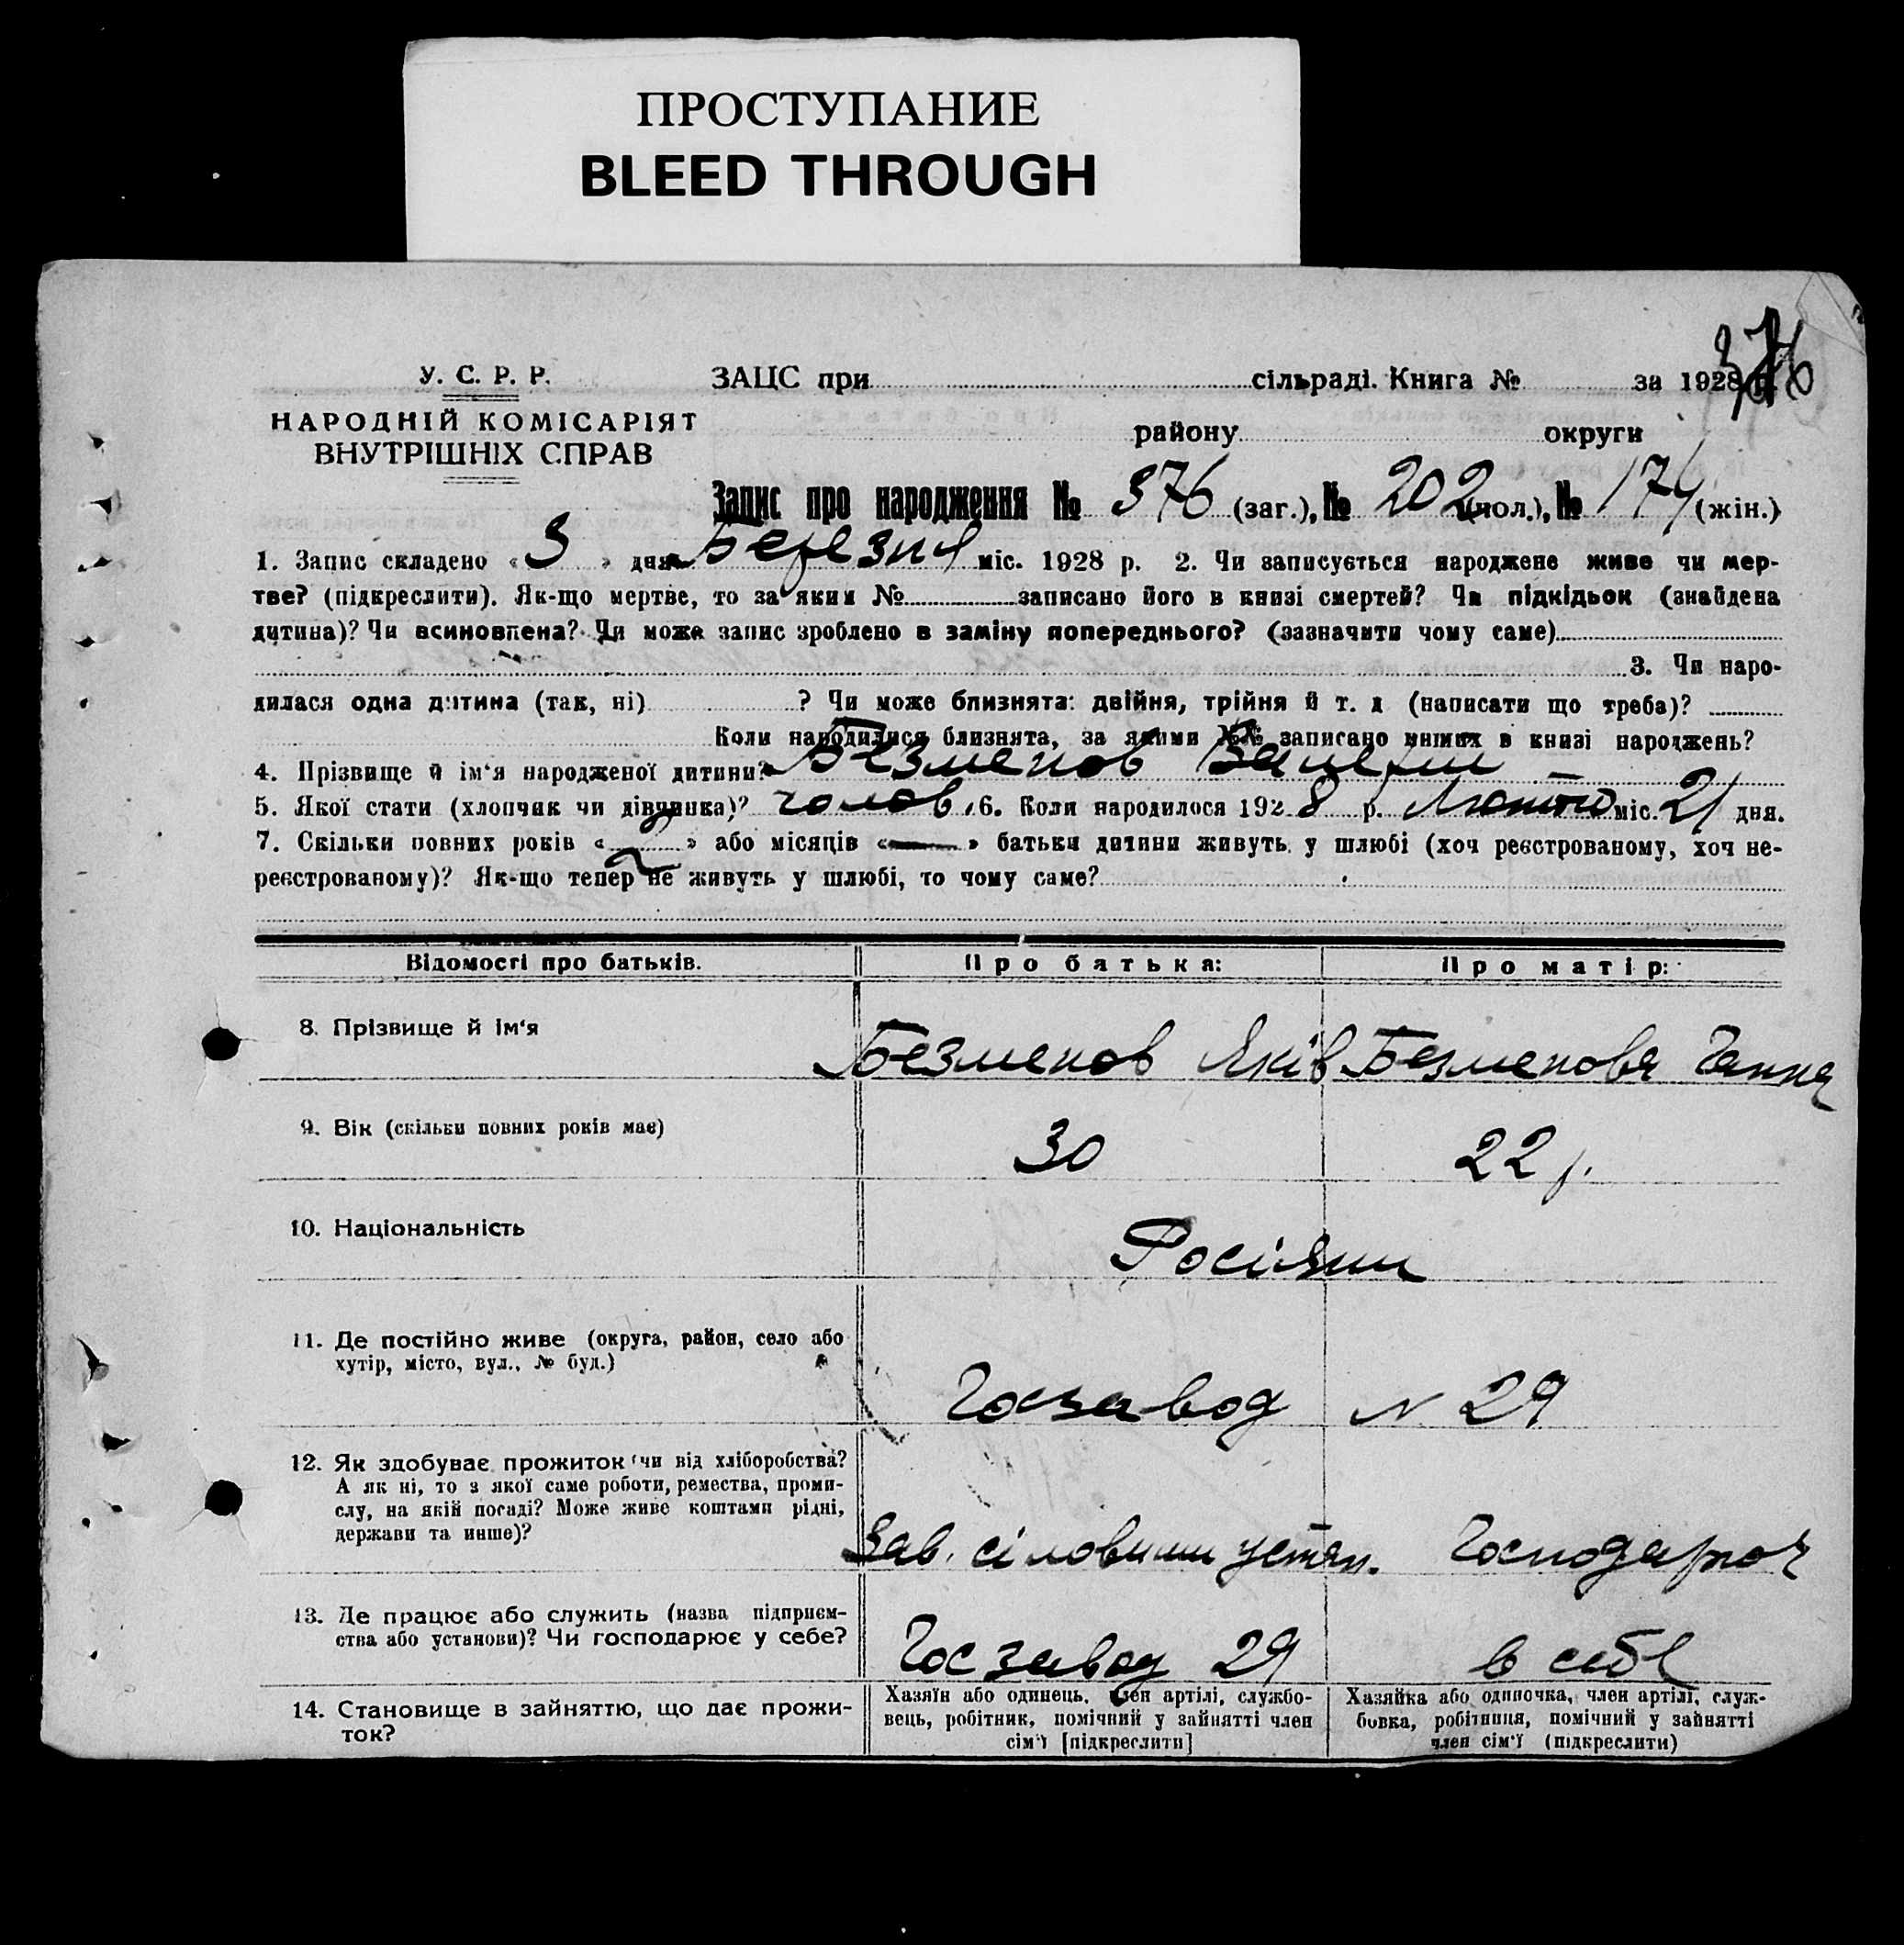 ПРОСТУПАНИЕ
BLEED THROUGH
376
У. С. Р. Р.
ЗАЦС при сільраді. Книга № за 1928 р.
НАРОДНІЙ КОМІСАРІЯТ
ВНУТРІШНІХ СПРАВ
району округи
Запис про народження № 376 (заг.), № 202 (чол.), № 174 (жін.)
1. Запис складено « 3 » дня Березня міс. 1928 р. 2. Чи записується народжене живе чи мер-
тве? (підкреслити). Як-що мертве, то за яким № записано його в книзі смертей? Чи підкідьок (знайдена
дитина)? Чи всиновлена? Чи може запис зроблено в заміну попереднього? (зазначити чому саме)
3. Чи наро-
дилася одна дитина (так, ні) ? Чи може близнята: двійня, трійня й т. д (написати що треба)?
Коли народилися близнята, за якими №№ записано инших в книзі народжень?
4. Прізвище й ім'я народженої дитини? Безменов Валерий
5. Якої стати (хлопчик чи дівчинка)? чолов. 6. Коли народилося 1928 р. Лютого міс. 21 дня.
7. Скільки повних років « 2 » або місяців « — » батьки дитини живуть у шлюбі (хоч реєстрованому, хоч не-
реєстрованому)? Як-що тепер не живуть у шлюбі, то чому саме?
Відомості про батьків. Про батька: Про матір:
8. Прізвище й ім'я Безменов Яків Безменова Ганна
9. Вік (скільки повних років має) 30 22 р.
10. Національність Росіяни
11. Де постійно живе (округа, район, село або
хутір, місто, вул., № буд.)
Госзавод N 29
12. Як здобуває прожиток (чи від хліборобства?
А як ні, то з якої саме роботи, ремества, проми-
слу, на якій посаді? Може живе коштами рідні,
держави та инше)?
Зав. сіловими устан. Господарює
13. Де працює або служить (назва підприєм-
ства або установи)? Чи господарює у себе?
Госзавод 29 в себе
14. Становище в зайняттю, що дає прожи-
ток?
Хазяїн або одинець, член артілі, службо-
вець, робітник, помічний у зайнятті член
сім'ї [підкреслити]
Хазяйка або одиночка, член артілі, служ-
бовка, робітниця, помічний у зайнятті
член сім'ї (підкреслити)